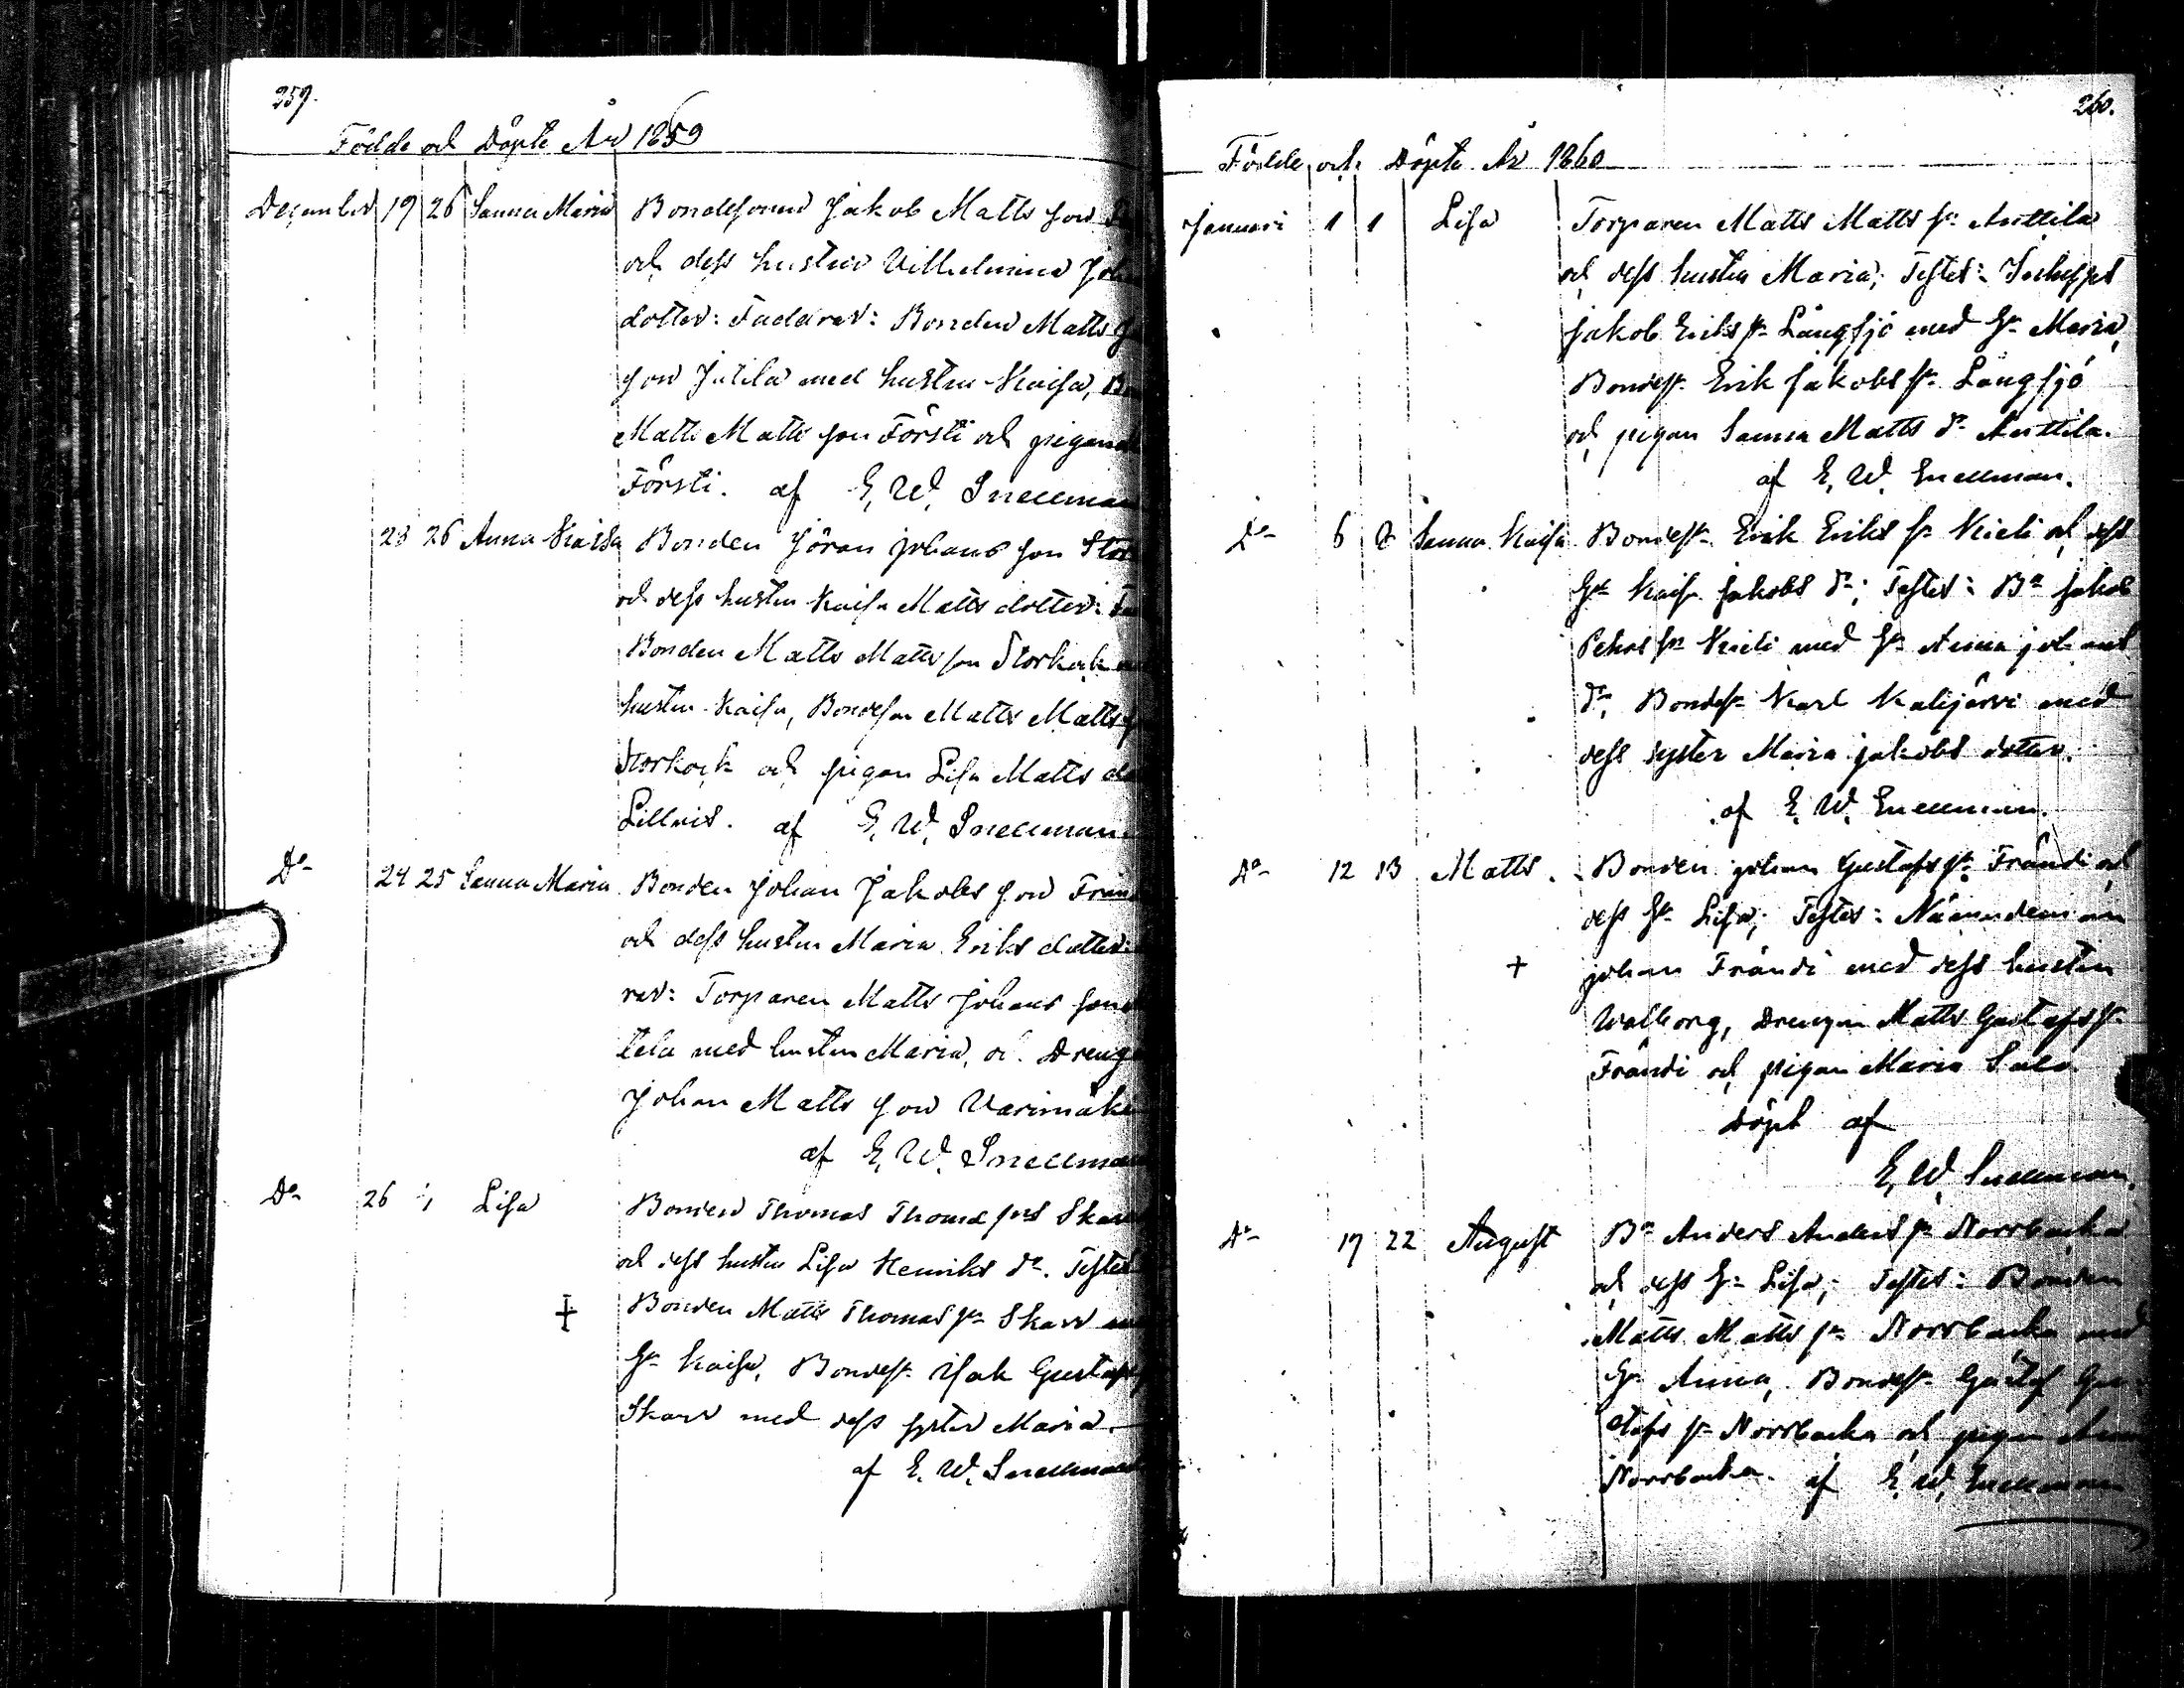 259.
Födde och Döpte År 1859
December 19 26 Sanna Maria Bondesonen Jakob Matts son
och dess hustru Vilhelmina Joh
dotter: Faddrar: Bonden Matts
son Jutila med hustru Kaisa,
Matts Matts son Försti och pigan
Försti. af E. W. Snellman
23 26 Anna Kaisa Bonden Jöran Johans son Stor
och dess hustru Kaisa Matts dotter:
Bonden Matts Matts son Storkock
hustru Kaisa, Bondeson Matts Matts
Storkock och pigan Lisa Matts do
Lillris. af E. W. Snellman
Do 24 25 Sanna Maria Bonden Johan Jakobs son Frän
och dess hustru Maria Eriks dotter:
rar: Torparen Matts Johans son
tela med hustru Maria, och Dreng
Johan Matts son Varimäki
af E. W. Snellman
Do 26 Lisa Bonden Thomas Thomæ son Skarv
och dess hustru Lisa Henriks dr. Testes
+ Bonden Matts Thomas sn Skarv
Hu Kaisa, Bondesn Isak Gustafs
Skarv med dess syster Maria.
af E. W. Snellman
260.
Födde och Döpte År 1860
Januari 1 1 Lisa Torparen Matts Matts sn Anttila
och dess hustru Maria; Testes:
Jakob Eriks sn Långsjö med Hu Maria,
Bondesn Erik Jakobs sn Långsjö
och pigan Sanna Matts dr Anttila.
af E. W. Snellman.
Do 6 8 Sanna Kaisa Bondesn Erik Eriks sn Kieli och dess
Hu Kaisa Jakobs dr; Testes: Bn Jakob
Pehrs sn Kieli med Hu Anna Johans
dr, Bondesn Karl Kalijärvi med
dess syster Maria Jakobs dotter.
af E. W. Snellman.
Do 12 13 Matts. Bonden Johan Gustafs sn Frändi och
dess Hu Lisa; Testes: Nämndeman
+ Johan Frändi med dess hustru
Walborg, Drengen Matts Gustafs sn
Frändi och pigan Maria Salo.
Döpt af
E. W. Snellman.
Do 17 22 August Bn Anders Anders sn Norrbacka
och dess Hu Lisa; Testes: Bonden
Matts Matts sn Norrbacka med
Hu Anna, Bondesn Gustaf Gu
stafs sn Norrbacka och pigan Anna
Norrbacka. af E. W. Snellman